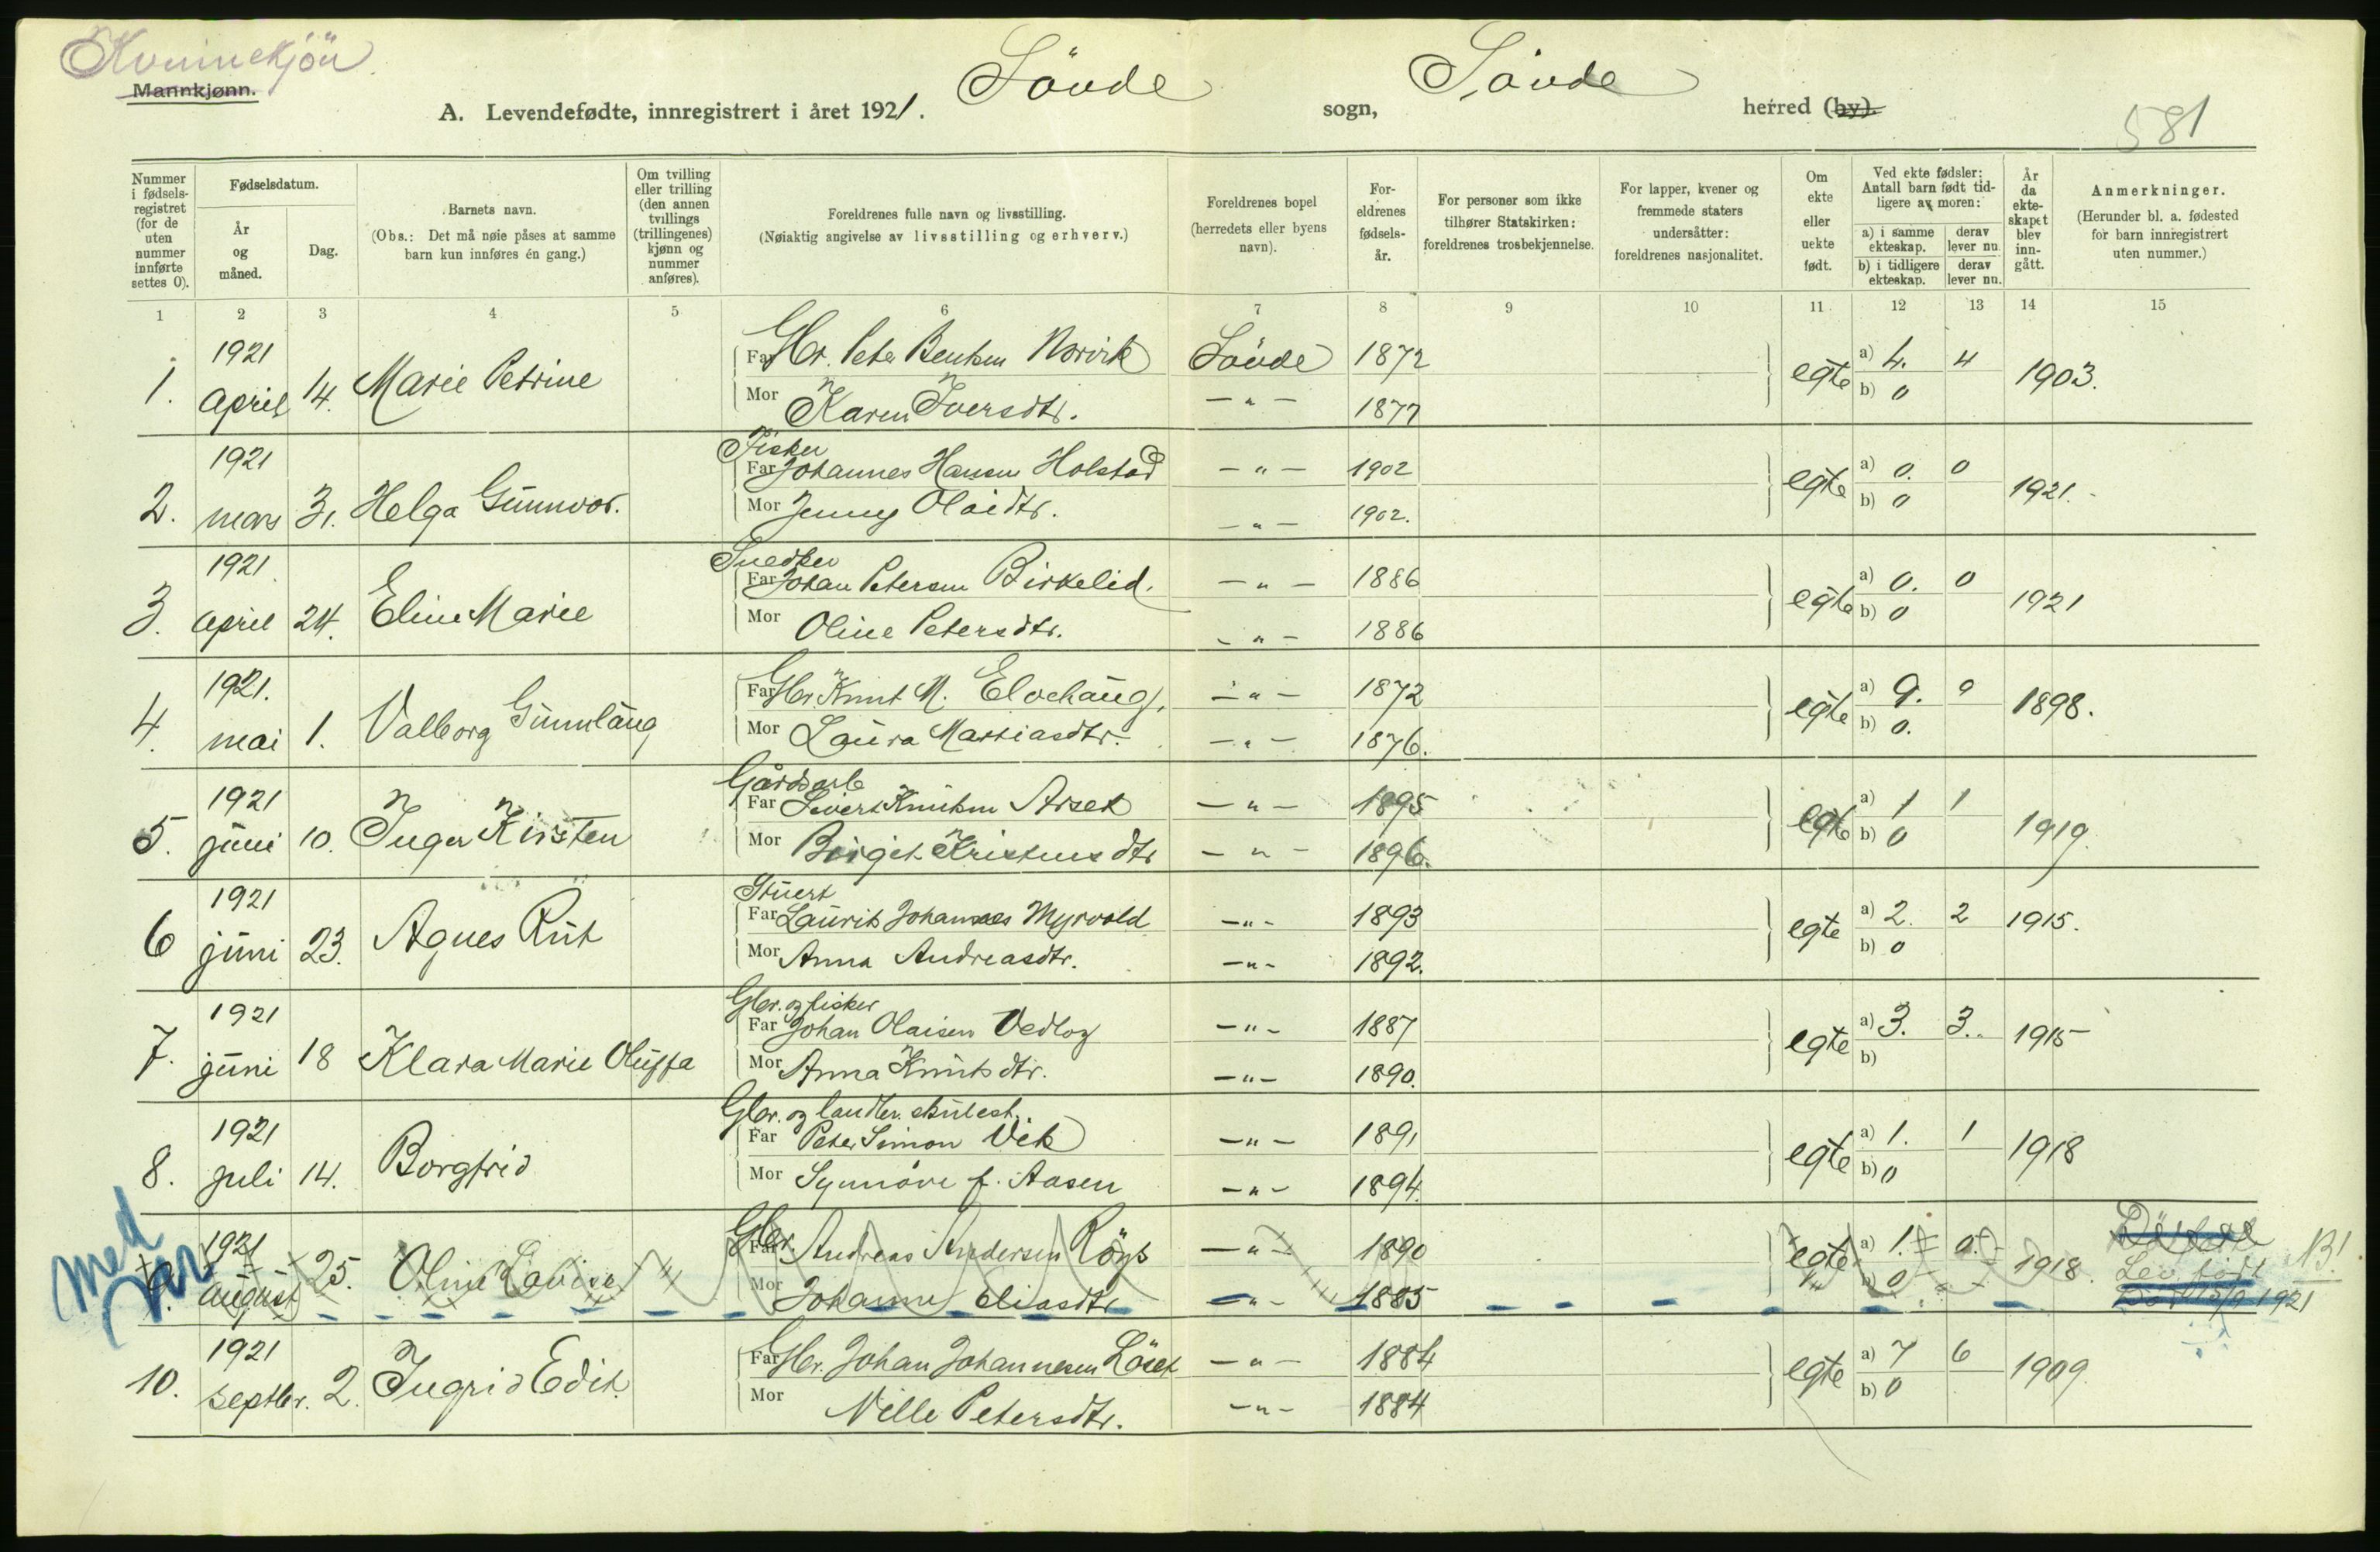 Kvinnekjön
Mannkjønn.
A. Levendefødte, innregistrert i året 1921. Sövde sogn, Sövde herred (by).
581
Nummer i fødselsregistret (for de uten nummer innførte settes 0).
Fødselsdatum.
År og måned.
Dag.
Barnets navn.
(Obs.: Det må nøie påses at samme barn kun innføres én gang.)
Om tvilling eller trilling (den annen tvillings (trillingenes) kjønn og nummer anføres).
Foreldrenes fulle navn og livsstilling.
(Nøiaktig angivelse av livsstilling og erhverv.)
Foreldrenes bopel (herredets eller byens navn).
Foreldrenes fødselsår.
For personer som ikke tilhører Statskirken: foreldrenes trosbekjennelse.
For lapper, kvener og fremmede staters undersåtter: foreldrenes nasjonalitet.
Om ekte eller uekte født.
Ved ekte fødsler: Antall barn født tidligere av moren:
a) i samme ekteskap. derav lever nu.
b) i tidligere ekteskap. derav lever nu.
År da ekteskapet blev inngått.
Anmerkninger.
(Herunder bl. a. fødested for barn innregistrert uten nummer.)
1 2 3 4 5 6 7 8 9 10 11 12 13 14 15
1. 1921 april 14. Marie Petrine Far Gbr. Peter Bentsen Norvik Sövde 1872 egte a) 4. 4 1903.
Mor Karen Iversdtr. — " — 1877 b) 0
2. 1921 mars 31. Helga Gunnvor. Fisker
Far Johannes Hansen Holstad — " — 1902 egte a) 0. 0 1921.
Mor Jenny Olaidtr. — " — 1902. b) 0
3. 1921 april 24. Eline Marie Snedker
Far Johan Petersen Birkelid. — " — 1886 egte a) 0. 0 1921
Mor Oline Petersdtr. — " — 1886 b) 0
4. 1921. mai 1. Valborg Gunnlaug Far Gbr. Knut M. Elvehaug. — " — 1872 egte a) 9. 9 1898.
Mor Laura Mattiasdtr. — " — 1876. b) 0.
5. 1921 juni 10. Inger Kirsten Gårdsarb
Far Sivert Knutsen Arset — " — 1895 egte a) 1 1 1919.
Mor Birgit Kristensdtr — " — 1896. b) 0
6 1921 juni 23. Agnes Rut Stuert
Far Laurits Johannes Myrvold — " — 1893 egte a) 2. 2 1915.
Mor Anna Andreasdtr. — " — 1892. b) 0
7. 1921 juni 18 Klara Marie Oluffa Gbr. og fisker
Far Johan Olaisen Vedlog — " — 1887 egte a) 3. 3. 1915
Mor Anna Knutsdtr. — " — 1890. b)
8. 1921 juli 14. Borgfrid Gbr. og landbr. skulest.
Far Peter Simon Vik — " — 1891 egte a) 1. 1 1918
Mor Synnöve f. Aasen — " — 1894. b) 0
Med
9. 1921 august 25. Oline Lovise Gbr.
Far Andreas Andersen Röys — " — 1890 egte a) 1. 0. 1918. Dödfød
Mor Johanne Eliasdtr — " — 1885 b) 0 Lev. født B!
Död 15/9 1921
10. 1921 septbr. 2. Ingrid Edit. Far Gbr. Johan Johannesen Löset — " — 1884 egte a) 7 6 1909.
Mor Nille Petersdtr. — " — 1884 b) 0